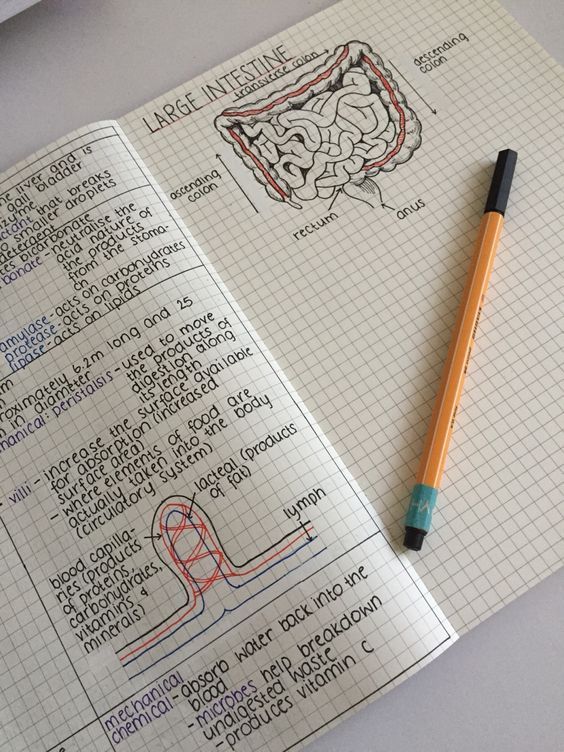 he liver and is
gall bladder
enzyme
that breaks
smaller droplets
detergent
bicarbonate
neutralise the
acid nature of
the products
from the stoma-
ch
amylase - acts on carbohydrates
protease - acts on proteins
lipase - acts on lipids
6.2m long and 25
in diameter
peristalsis - used to move
the products of
digestion along
its length
villi - increase the surface available
for absorption (increased
surface area)
- where elements of food are
actually taken into the body
(circulatory system)
lacteal (products
of fat)
lymph
blood capilla-
ries (products
of proteins,
carbohydrates,
vitamins &
minerals)
mechanical - absorb water back into the
blood
chemical - microbes help breakdown
undigested waste
- produces vitamin C
LARGE INTESTINE
transverse colon
descending
colon
ascending
colon
rectum
anus